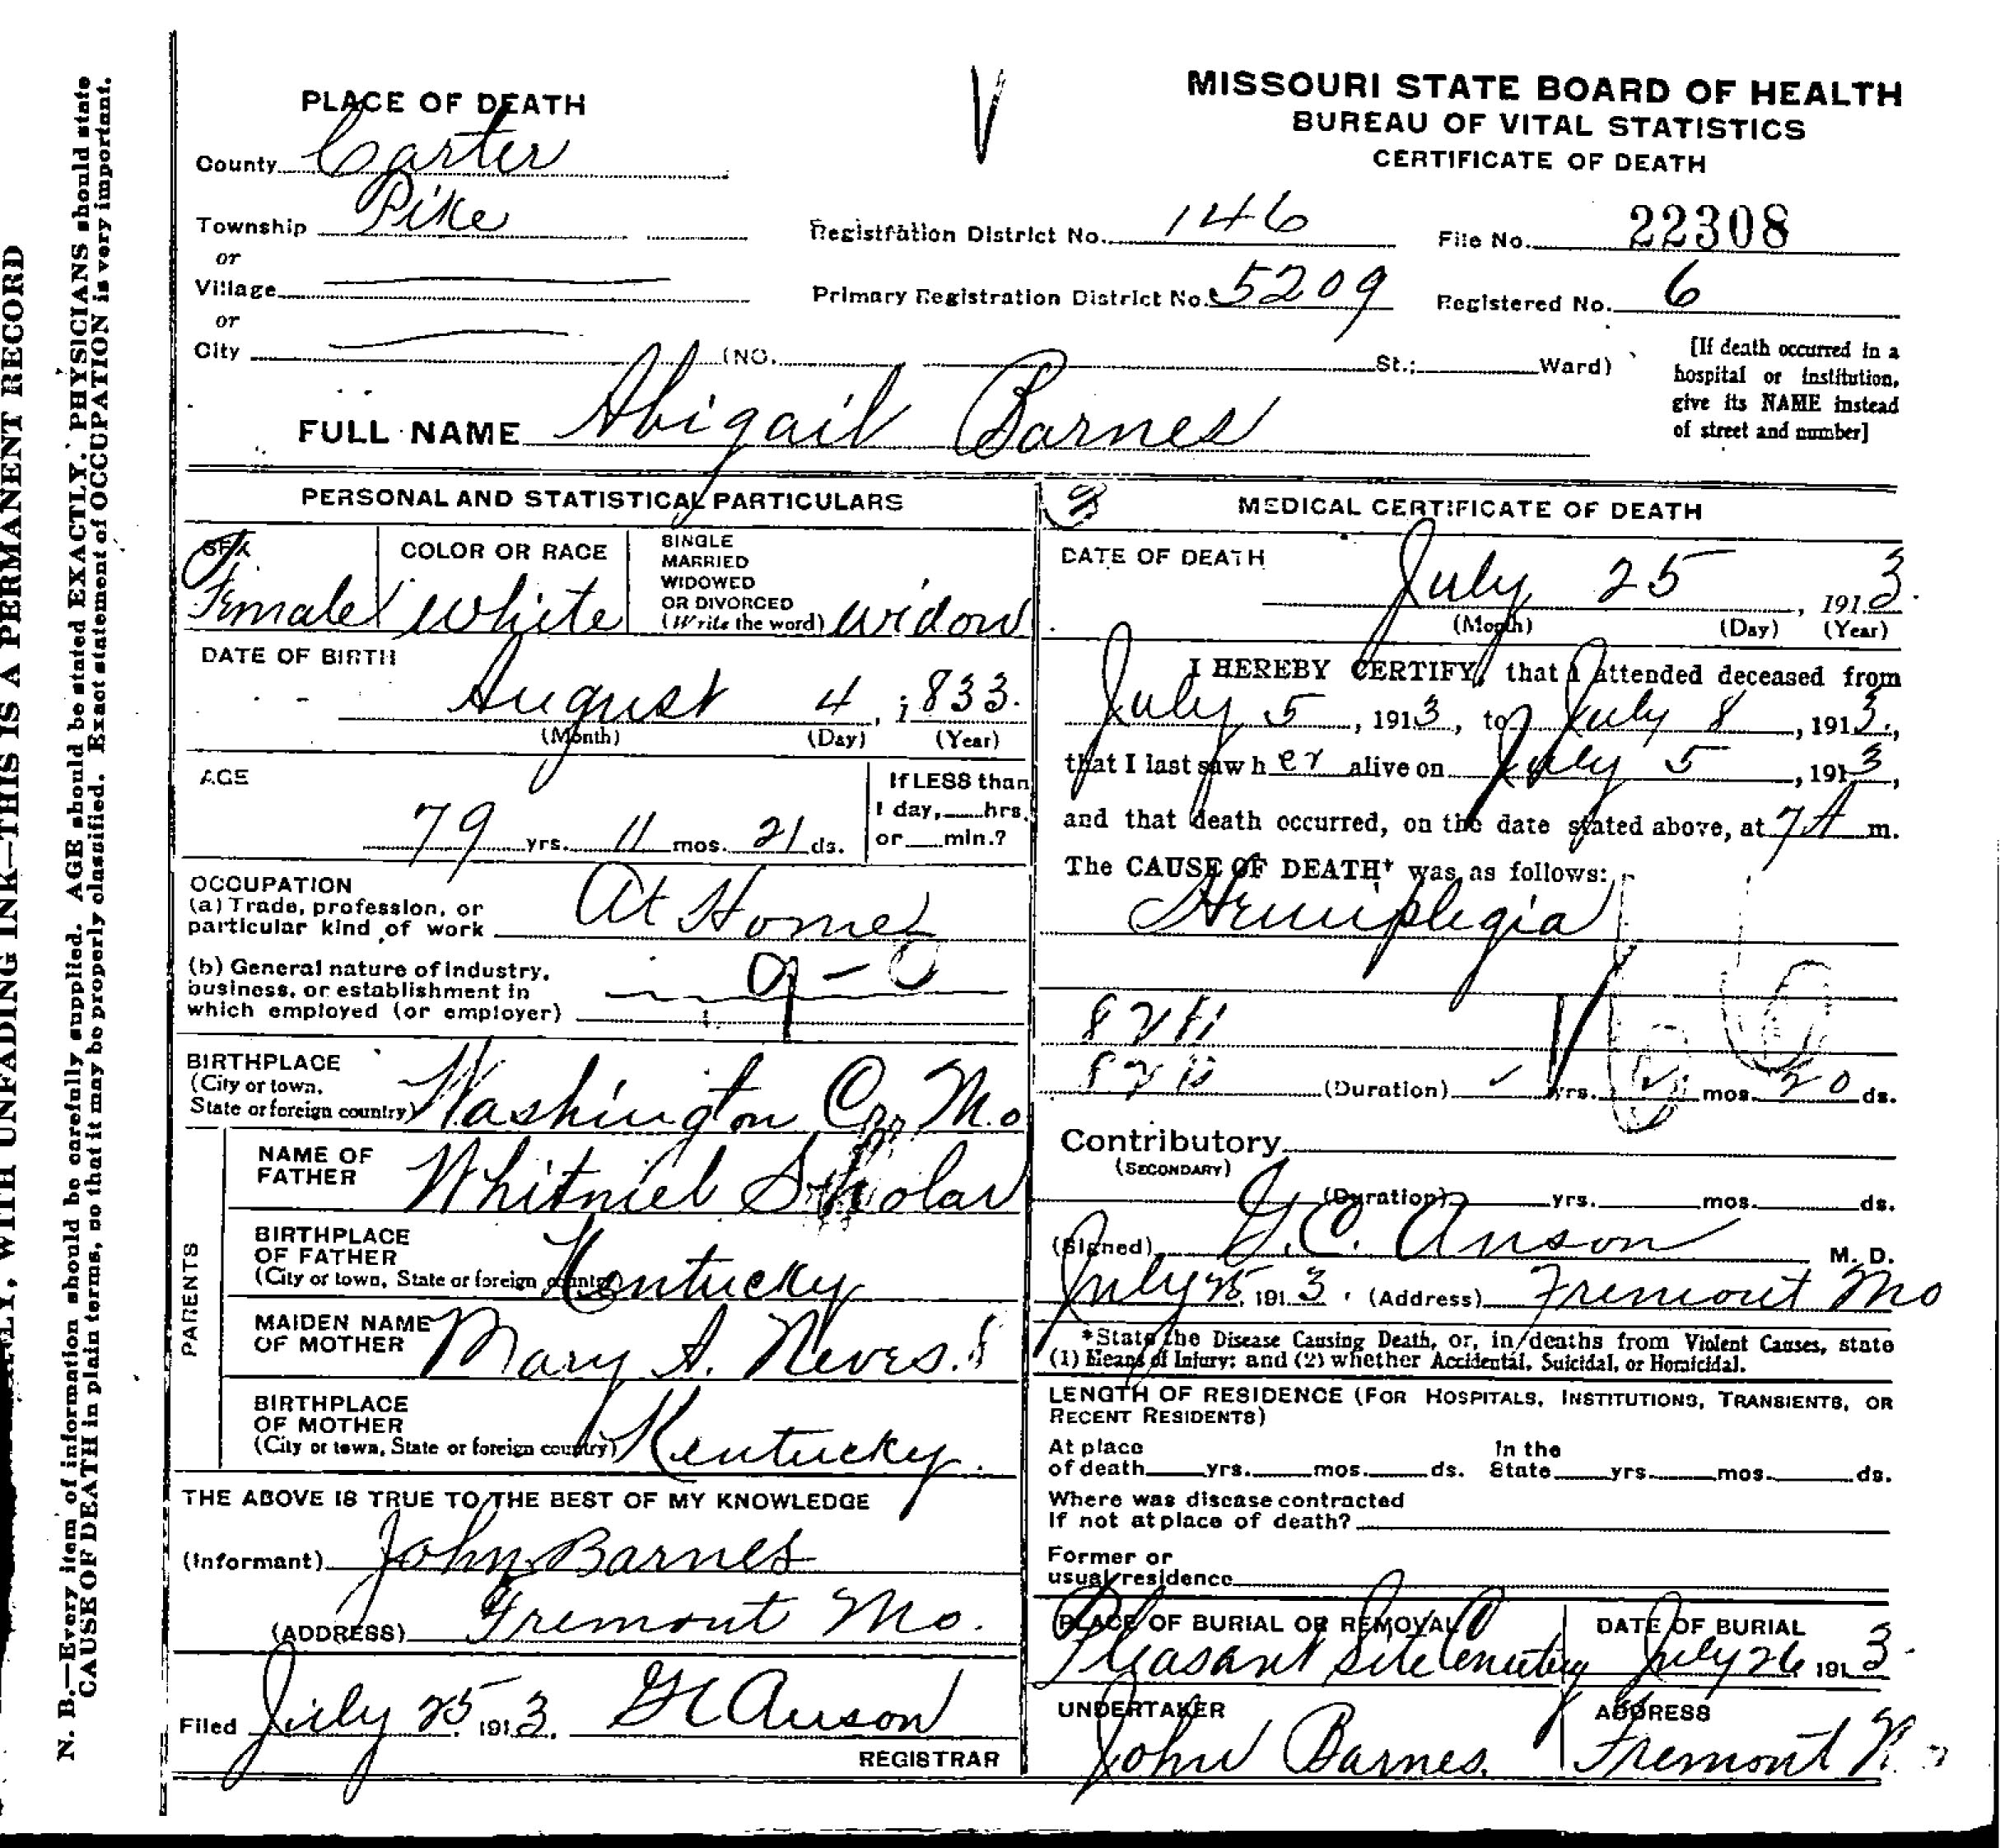 MISSOURI STATE BOARD OF HEALTH
BUREAU OF VITAL STATISTICS
CERTIFICATE OF DEATH
PLACE OF DEATH
County Carter
Township Pike
or
Village
or
City (NO. St.; Ward)
Registration District No. 146
File No. 22308
Primary Registration District No. 5209
Registered No. 6
[If death occurred in a
hospital or institution,
give its NAME instead
of street and number]
FULL NAME Abigail Barnes
PERSONAL AND STATISTICAL PARTICULARS
SEX
Female
COLOR OR RACE
White
SINGLE
MARRIED
WIDOWED
OR DIVORCED
(Write the word) Widow
DATE OF BIRTH
August 4, 1833.
(Month) (Day) (Year)
AGE
79 yrs. 11 mos. 21 ds.
If LESS than
1 day, hrs.
or min.?
OCCUPATION
(a) Trade, profession, or
particular kind of work At Home
(b) General nature of industry,
business, or establishment in
which employed (or employer)
9-0
BIRTHPLACE
(City or town,
State or foreign country) Washington Co, Mo
PARENTS
NAME OF
FATHER Whitniel Scholar
BIRTHPLACE
OF FATHER
(City or town, State or foreign country) Kentucky
MAIDEN NAME
OF MOTHER Mary A. Neves.
BIRTHPLACE
OF MOTHER
(City or town, State or foreign country) Kentucky.
THE ABOVE IS TRUE TO THE BEST OF MY KNOWLEDGE
(Informant) John Barnes
(ADDRESS) Fremont Mo.
Filed July 25 1913. G C Anson
REGISTRAR
MEDICAL CERTIFICATE OF DEATH
DATE OF DEATH
July 25, 1913.
(Month) (Day) (Year)
I HEREBY CERTIFY, that I attended deceased from
July 5, 1913, to July 8, 1913,
that I last saw her alive on July 5, 1913,
and that death occurred, on the date stated above, at 7 A m.
The CAUSE OF DEATH* was as follows:
Hemiplegia
(Duration) yrs. mos. 20 ds.
Contributory
(SECONDARY)
(Duration) yrs. mos. ds.
(Signed) G. C. Anson M. D.
July 25, 1913. (Address) Fremont Mo
*State the Disease Causing Death, or, in deaths from Violent Causes, state
(1) Means of Injury; and (2) whether Accidental, Suicidal, or Homicidal.
LENGTH OF RESIDENCE (FOR HOSPITALS, INSTITUTIONS, TRANSIENTS, OR
RECENT RESIDENTS)
At place
of death yrs. mos. ds.
In the
State yrs. mos. ds.
Where was disease contracted
If not at place of death?
Former or
usual residence
PLACE OF BURIAL OR REMOVAL
Pleasant Site Cemetery
DATE OF BURIAL
July 26 1913.
UNDERTAKER
John Barnes.
ADDRESS
Fremont
WITH UNFADING INK—THIS IS A PERMANENT RECORD
N. B.—Every item of information should be carefully supplied. AGE should be stated EXACTLY. PHYSICIANS should state
CAUSE OF DEATH in plain terms, so that it may be properly classified. Exact statement of OCCUPATION is very important.